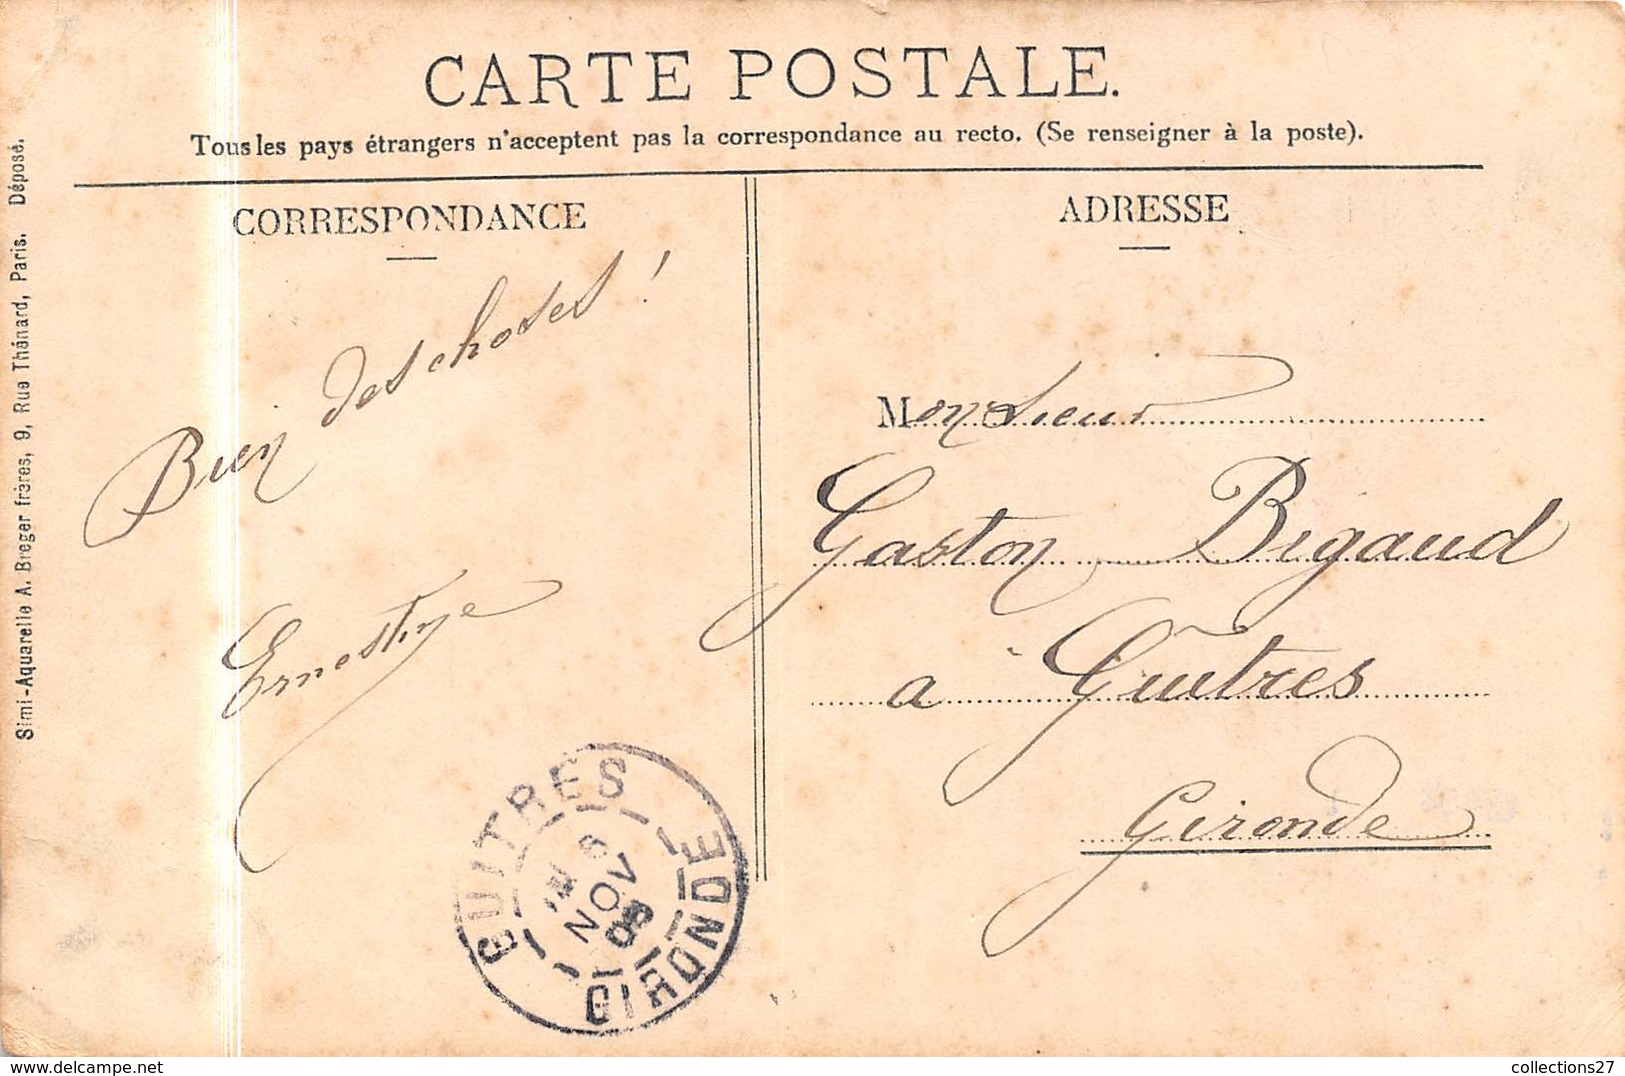 CARTE POSTALE.
Tous les pays étrangers n'acceptent pas la correspondance au recto. (Se renseigner à la poste).
CORRESPONDANCE
ADRESSE
Simi-Aquarelle A. Breger frères, 9, Rue Thénard, Paris. Déposé.
Bien des choses !
Ernestine
Monsieur
Gaston Bigaud
a Guîtres
Gironde
GUITRES
6
NOV
GIRONDE
collections27